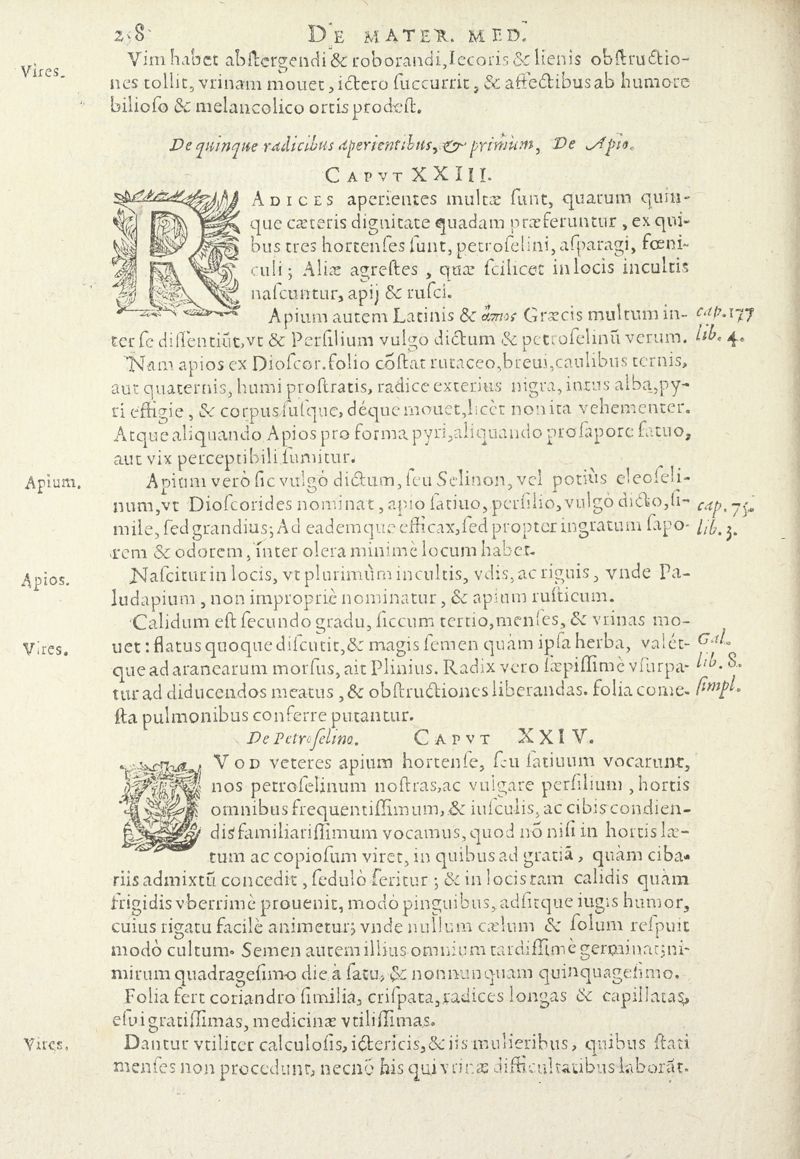 258 DE MATER. MED.
Vim habet abſtergendi & roborandi, Iecoris & lienis obſtructio-
Vires.
nes tollit, vrinam mouet, ictero ſuccurrit, & affectibus ab humore
bilioſo & melancolico ortis prodeſt.
De quinque radicibus aperientibus, & primùm, De Apio.
CAPVT XXIII.
RADICES aperientes multæ ſunt, quarum quin-
que cæteris dignitate quadam præferuntur, ex qui-
bus tres hortenſes ſunt, petroſelini, aſparagi, fœni-
culi; Aliæ agreſtes, quæ ſcilicet in locis incultis
naſcuntur, apij & ruſci.
Apium autem Latinis & ἄπιος Græcis multum in- cap. 177
ter ſe diſſentiūt, vt & Perſilium vulgo dictum & petroſelinū verum. lib. 4.
Nam apios ex Dioſcor. folio cōſtat rutaceo, breui, caulibus ternis,
aut quaternis, humi proſtratis, radice exterius nigra, intus alba, py-
ri effigie, & corpus ſuſque, déque mouet, licèt non ita vehementer.
Atque aliquando Apios pro forma pyri, aliquando pro ſapore fatuo,
aut vix perceptibili ſumitur.
Apium. Apium verò ſic vulgò dictum, ſeu Selinon, vel potiùs eleoſeli-
num, vt Dioſcorides nominat, apio ſatiuo, perſilio, vulgò dicto, ſi- cap. 75.
mile, ſed grandius; Ad eademque efficax, ſed propter ingratum ſapo- lib. 3.
rem & odorem, inter olera minimè locum habet.
Apios. Naſcitur in locis, vt plurimùm incultis, vdis, ac riguis, vnde Pa-
ludapium, non impropriè nominatur, & apium ruſticum.
Calidum eſt ſecundo gradu, ſiccum tertio, menſes, & vrinas mo-
Vires. uet: flatus quoque diſcutit, & magis ſemen quàm ipſa herba, valét- Gal.
que ad aranearum morſus, ait Plinius. Radix vero ſæpiſſimè vſurpa- lib. 8.
tur ad diducendos meatus, & obſtructiones liberandas. folia come- ſimpl.
ſta pulmonibus conferre putantur.
De Petroſelino. CAPVT XXIV.
QVOD veteres apium hortenſe, ſeu ſatiuum vocarunt,
nos petroſelinum noſtras, ac vulgare perſilium, hortis
omnibus frequentiſſimum, & iuſculis, ac cibis condien-
dis familiariſſimum vocamus, quod nō niſi in hortis læ-
tum ac copioſum viret, in quibus ad gratiā, quàm ciba-
riis admixtū concedit, ſedulò ſeritur; & in locis tam calidis quàm
frigidis vberrimè prouenit, modò pinguibus, adſitque iugis humor,
cuius rigatu facilè animetur; vnde nullum cælum & ſolum reſpuit
modò cultum. Semen autem illius omnium tardiſſimè germinat; ni-
mirum quadrageſimo die à ſatu, & nonnunquam quinquageſimo.
Folia fert coriandro ſimilia, criſpata, radices longas & capillatas,
eſui gratiſſimas, medicinæ vtiliſſimas.
Vires. Dantur vtiliter calculoſis, ictericis, & iis mulieribus, quibus ſtati
menſes non procedunt, necnō his qui vrinæ difficultatibus laborāt.